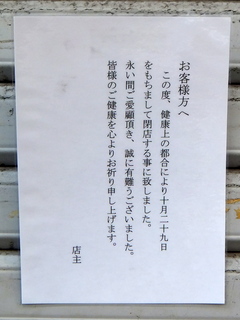 お客様方へ
この度、健康上の都合により十月二十九日
をもちまして閉店する事に致しました。
永い間ご愛顧頂き、誠に有難うございました。
皆様のご健康を心よりお祈り申し上げます。
店主